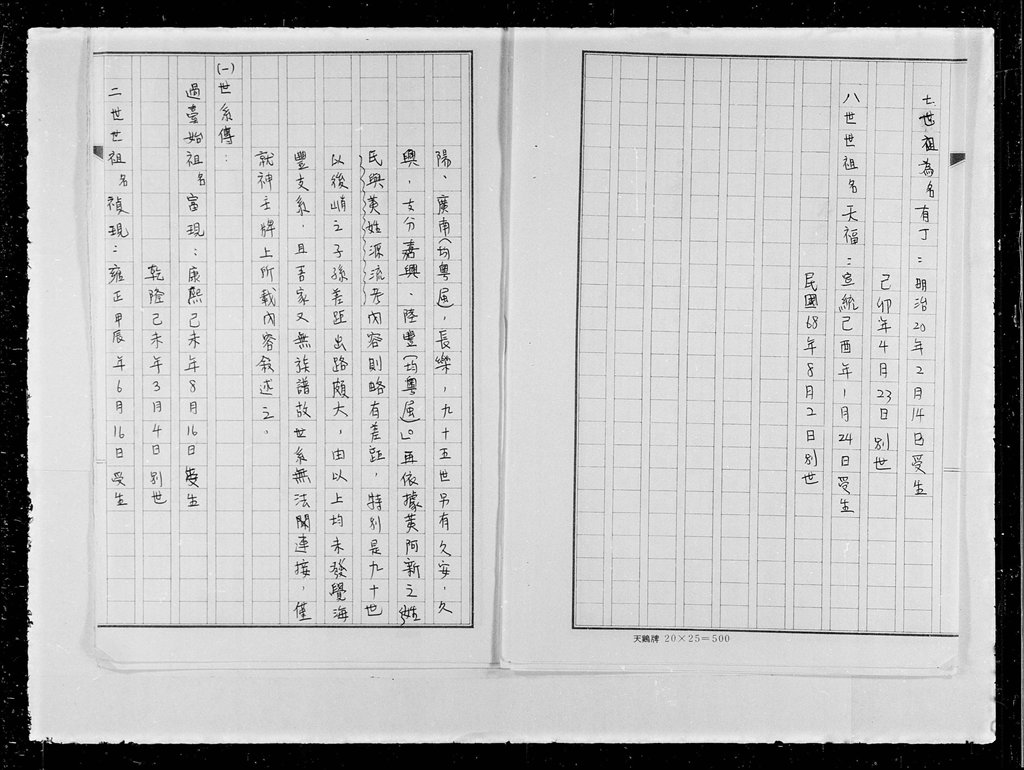 七世祖為名有丁：明治20年2月14日受生
己卯年4月23日別世
八世世祖名天福：宣統己酉年1月24日受生
民國68年8月2日別世
天鵝牌 20×25＝500
陽、廣南（均粵屬），長樂，九十五世另有久安，久
興，支分嘉興、陸豐（均粵屬）」。再依據黃阿新之「姓
氏與黃姓源流考」內容則略有差距，特別是九十世
以後峭之子孫差距出路頗大，由以上均未發覺海
豐支系，且吾家又無族譜故世系無法關連接，僅
就神主牌上所載內容敘述之。
(一)世系傳：
過臺始祖名富現：康熙己未年8月16日受生
乾隆己未年3月4日別世
二世世祖名禎現：雍正甲辰年6月16日受生